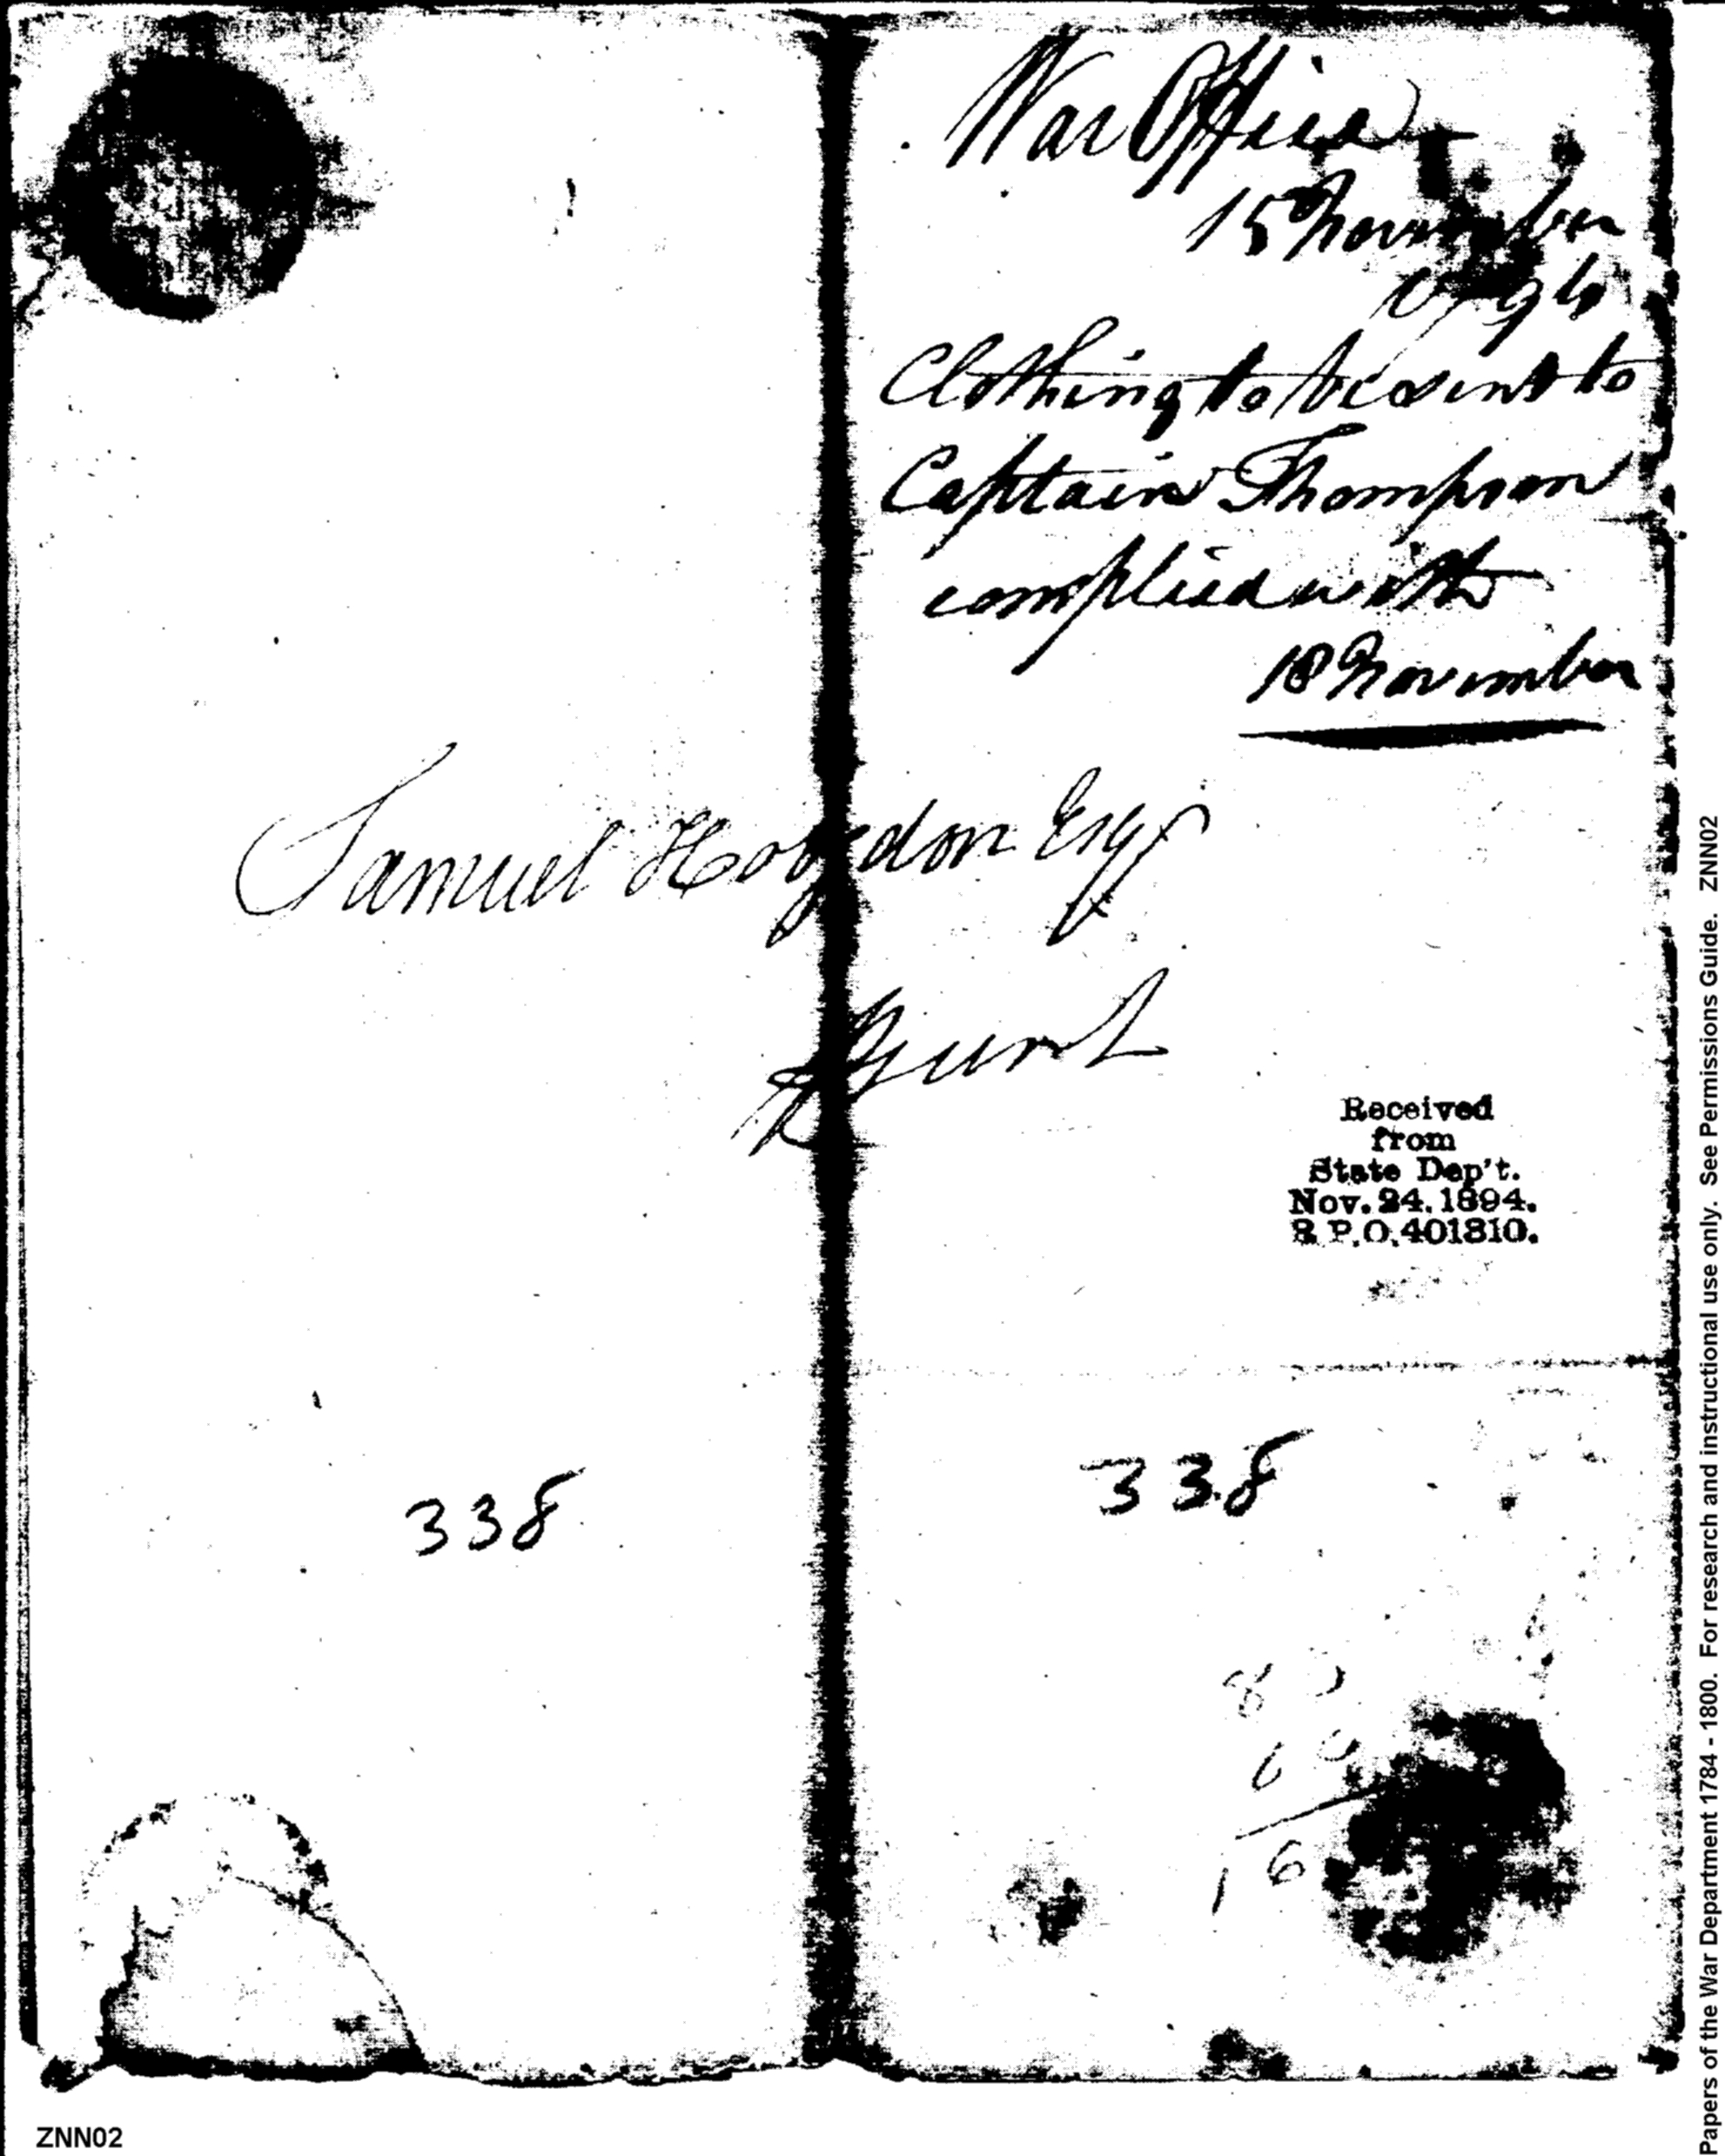 War Office
15 November
1794
Clothing to be sent to
Captain Thompson
complied with
18 November
Samuel Hogdon Esqr
Received
from
State Dep't.
Nov. 24. 1894.
R.P.O. 401810.
338
338
8
6
16
Papers of the War Department 1784 - 1800. For research and instructional use only. See Permissions Guide. ZNN02
ZNN02